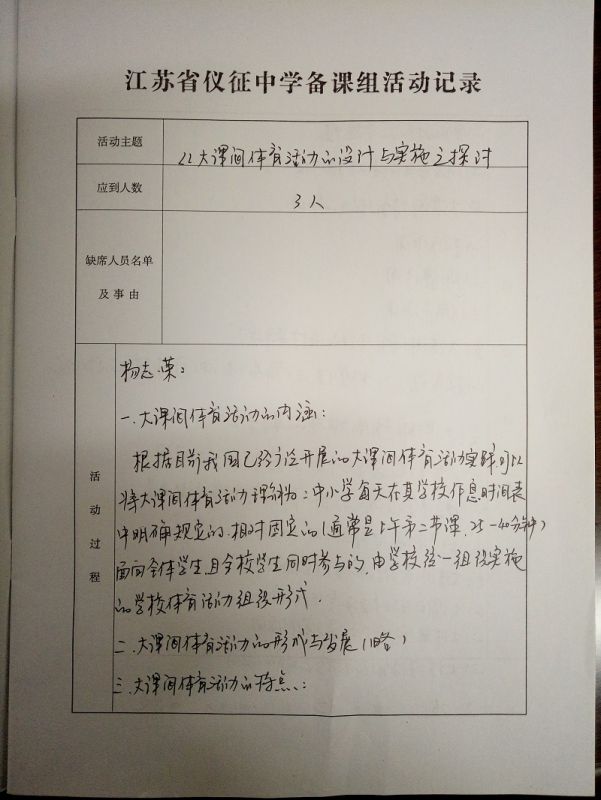 江苏省仪征中学备课组活动记录
活动主题
大课间体育活动的设计与实施之探讨
应到人数
3人
缺席人员名单
及事由
活动过程
杨志荣：
一.大课间体育活动的内涵：
根据目前我国已经广泛开展的大课间体育活动实践可以
将大课间体育活动理解为：中小学每天在其学校作息时间表
中明确规定的.相对固定的(通常是上午第二节课,25-40分钟)
面向全体学生,且全校学生同时参与的,由学校统一组织实施
的学校体育活动组织形式.
二.大课间体育活动的形成与发展(略)
三.大课间体育活动的特点：